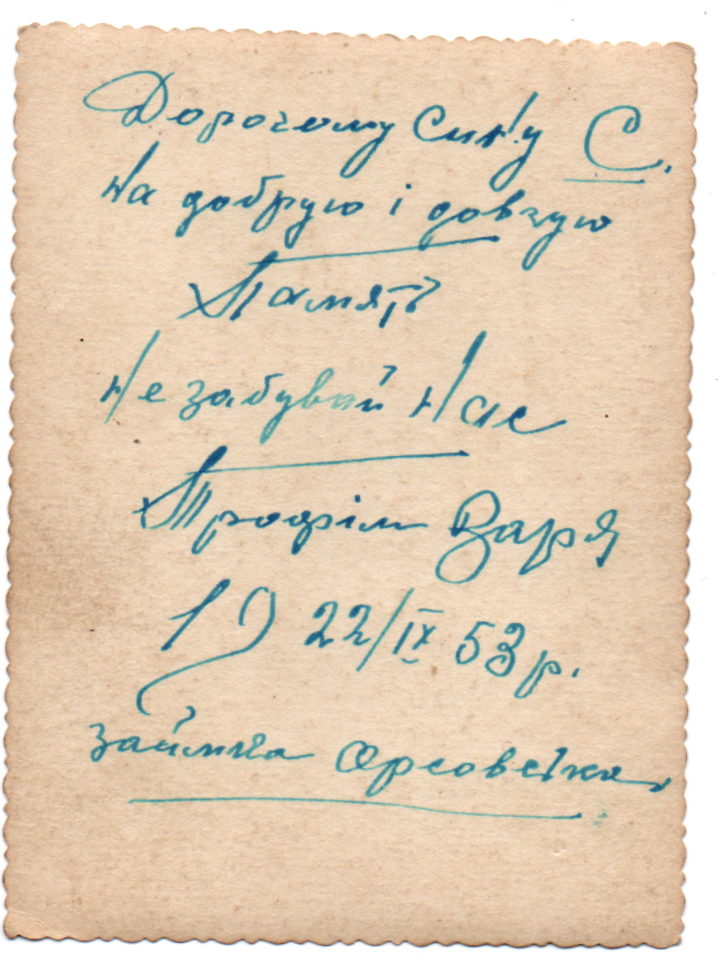 Дорогому Сину С.
На добрую і довгую
Память
Не забувай Нас
Трофім Варя
19 22/IX 53 р.
заимка Орсовская